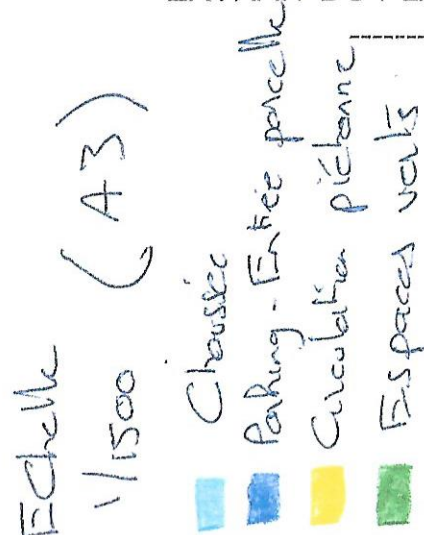 Echelle
1/1500 (A3)
Chaussée
Parking - Entrée parcelle
Circulation piétonne
Espaces verts